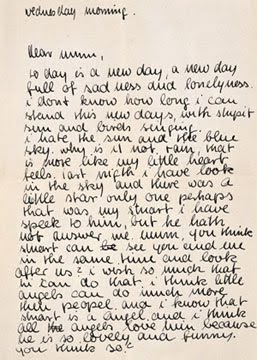 wednesday morning.
Dear mum,
to day is a new day, a new day
full of sad ness and lonelyness.
i dont know how long i can
stand this new days, with stupit
sun and birds singing.
i hate the sun and the blue
sky. why is it not, rain, that
is more like my little heart
feels. last nigth i have look
in the sky and there was a
little star only one perhaps
that was, my stuart i have
speak to him, but he hath
not answer me, mum. you think
stuart can be see you and me
in the same time and look
after us? i wish so much that
he can do that. i think little
angels can do much more
then peopel and i know that
stuart is a angel and i think
all the angels love him because
he is so lovely and funny.
you think so?